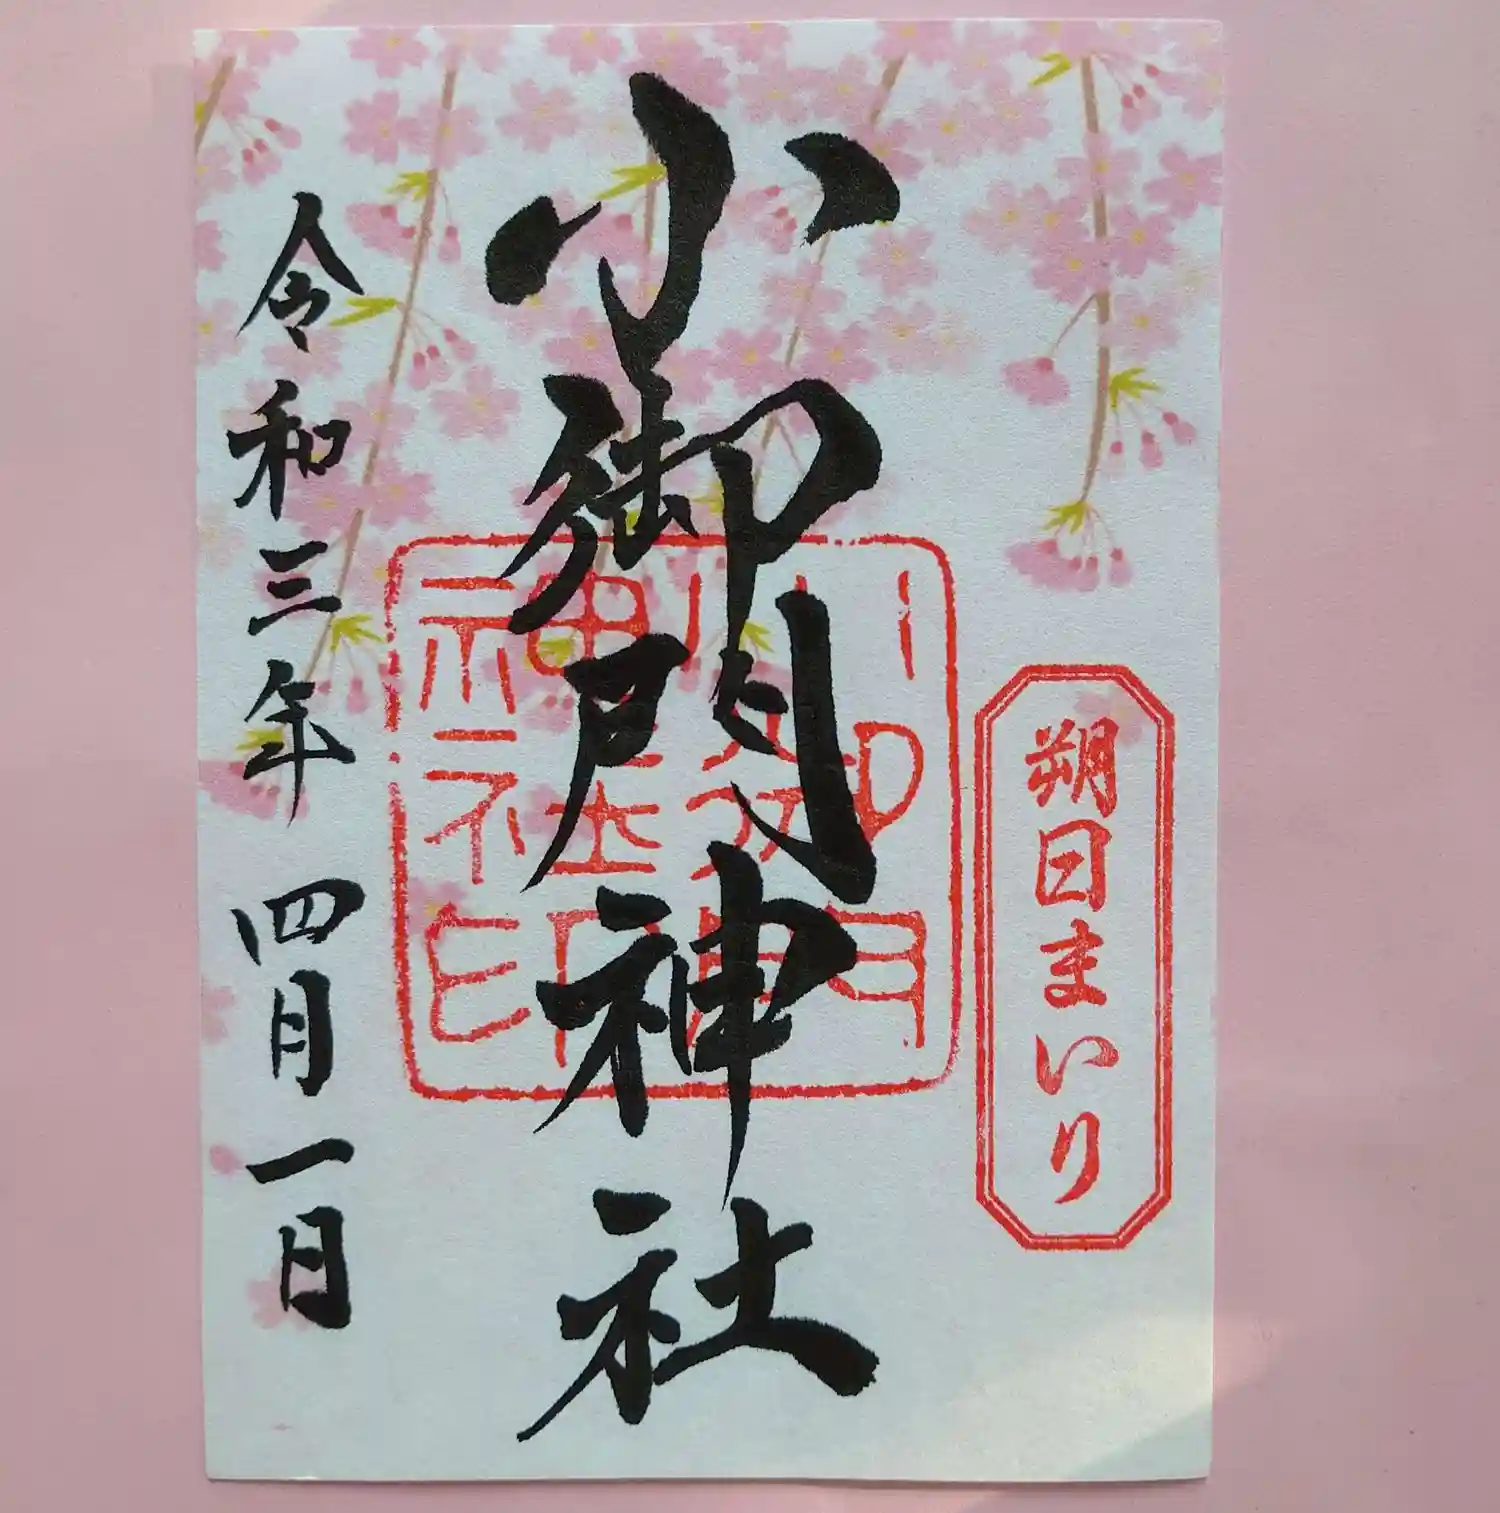 朔日まいり
小御門神社
小御門
神社印
令和三年 四月一日